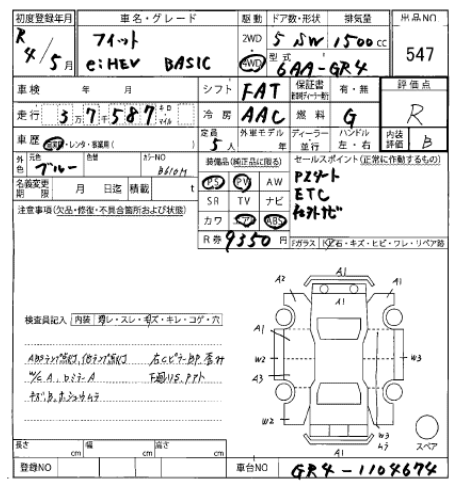 初度登録年月 車名・グレード 駆動 ドア数・形状 排気量 出品NO
R 4/5月 フィット e:HEV BASIC 2WD 4WD 5 5W 1500cc 547
型式 6AA-GR4
車検 年 月 シフト FAT 保証書 有・無 評価点
走行 3万7千587 キロ マイル 冷房 AAC 燃料 G R
車歴 レンタ・事業用( ) 定員 5人 外車モデル 年 ディーラー 並行 ハンドル 左・右 内装評価 B
外色 元色 ブルー 色替 カラーNO B610M 装備品(純正品に限る) セールスポイント(正常に作動するもの)
名義変更期限 月 日迄 積載 t PS PV AW
Pスタート
ETC
社外ナビ
注意事項(欠品・修復・不具合箇所および状態) SR TV ナビ
カワ エア ABS
R券 9350円 Fガラス 飛石・キズ・ヒビ・ワレ・リペア跡
A1
A2 A1 A1
検査員記入 内装 スレ・キズ・キレ・コゲ・穴
A1
W2 W3
A3
W2 W3
A1 スペア
ABSランプ点灯、
W/C A、
長さ cm 幅 cm 高さ cm
登録NO 車台NO GR4-1104674